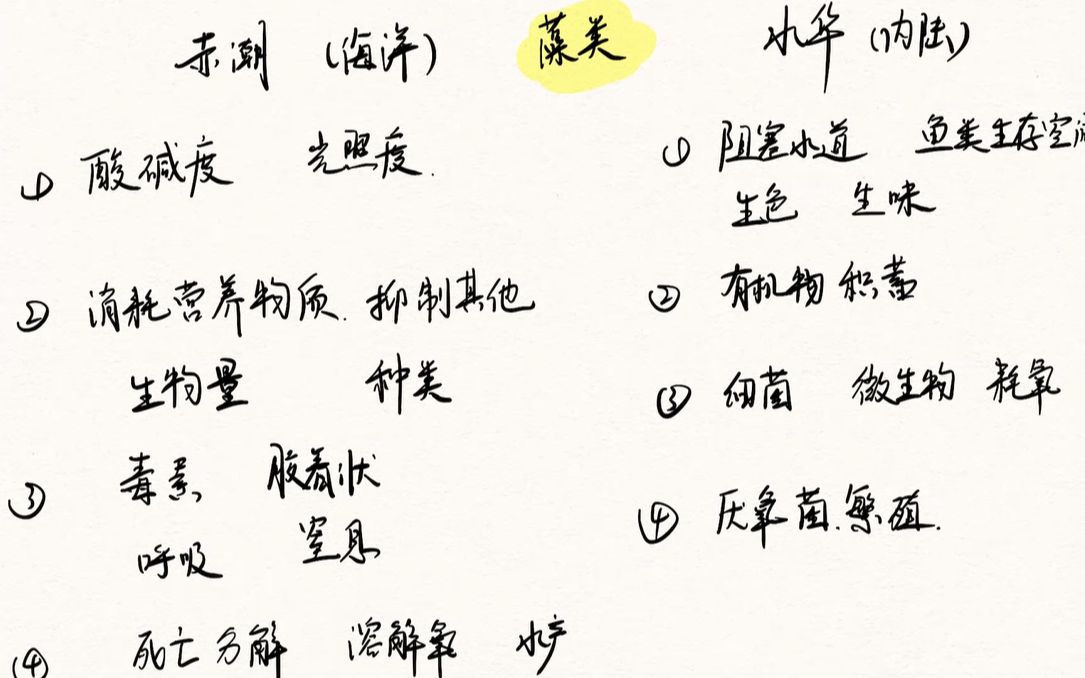 赤潮 (海洋) 藻类 水华 (内陆)
① 酸碱度 光照度.
② 消耗营养物质. 抑制其他
生物量 种类
③ 毒素 胶着状
呼吸 窒息
④ 死亡分解 溶解氧 水产
① 阻塞水道 鱼类生存空间
生色 生味
② 有机物积蓄
③ 细菌 微生物 耗氧
④ 厌氧菌.繁殖.